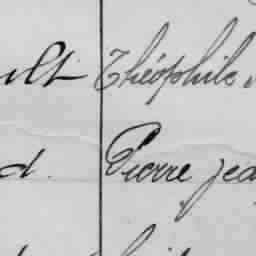 ult Théophile
d. Pierre Jea